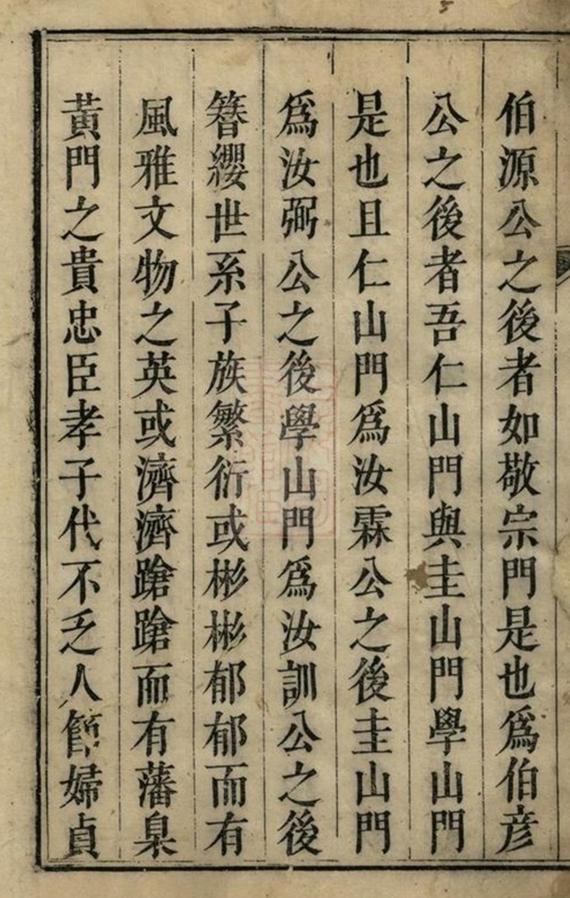 伯源公之後者如敬宗門是也爲伯彥
公之後者吾仁山門與圭山門學山門
是也且仁山門爲汝霖公之後圭山門
爲汝弼公之後學山門爲汝訓公之後
簪纓世系子族繁衍或彬彬郁郁而有
風雅文物之英或濟濟蹌蹌而有藩臬
黃門之貴忠臣孝子代不乏人節婦貞